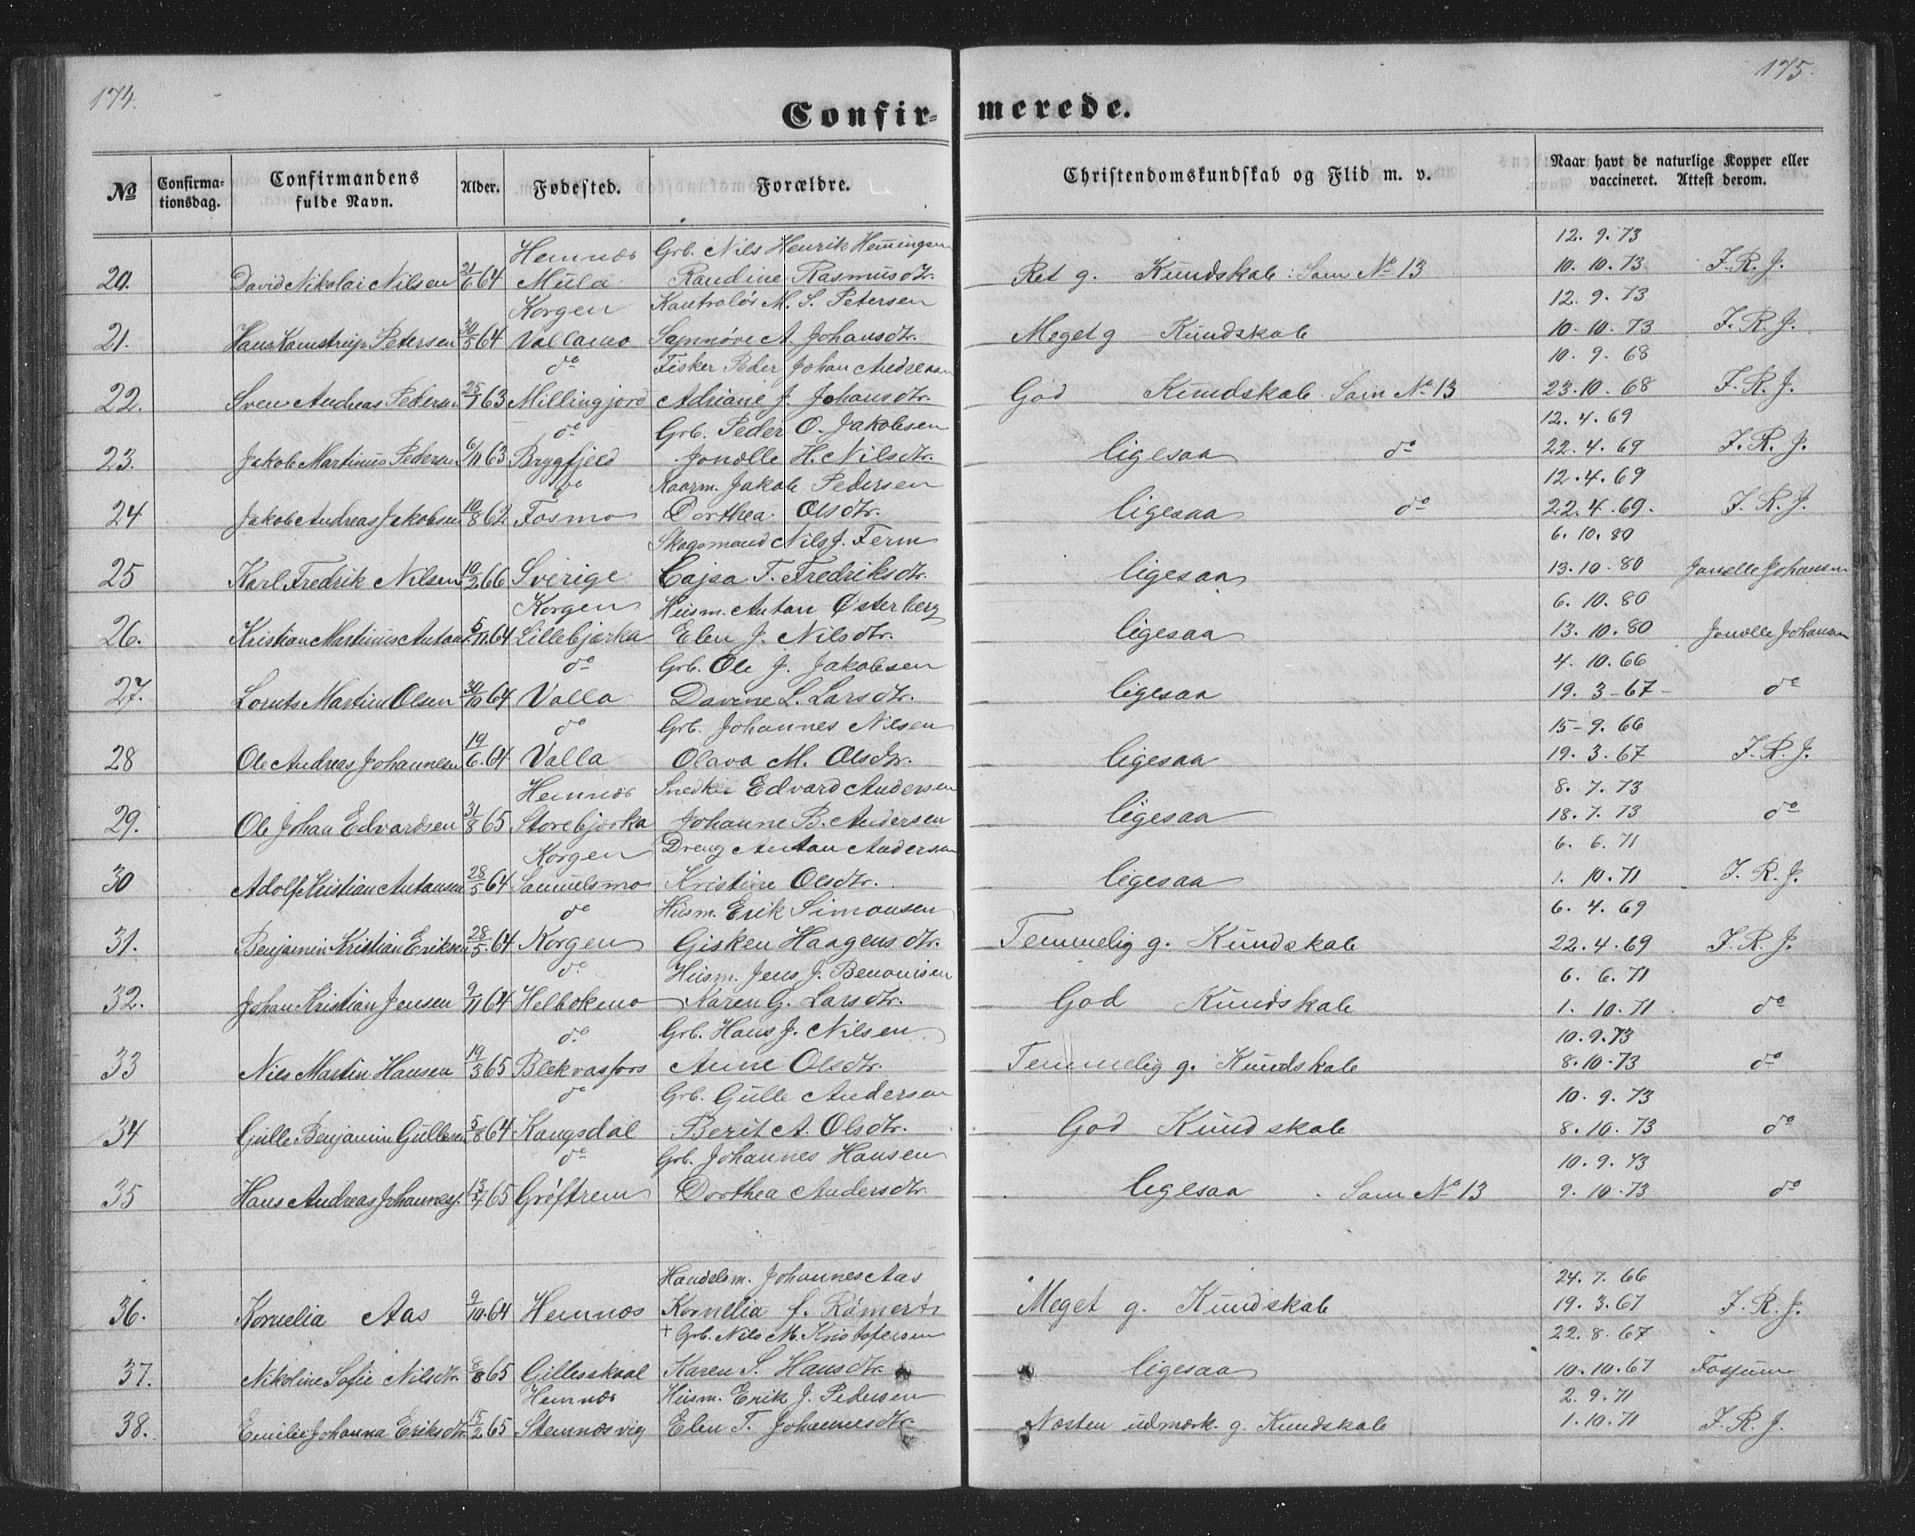 174.
175.
Confir- merede.
№ Confirma-tionsdag. Confirmandens fulde Navn. Alder. Fødested. Forældre. Christendomskundskab og Flid m. v. Naar havt de naturlige Kopper eller vaccineret. Attest derom.
Hemnæs Grb. Nils Henrik Hemingsen 12. 9. 73
20. David Nikolai Nilsen 21/6 64 Mula Randine Rasmusdtr. Ret g. Kundskab: Som № 13 10. 10. 73 J. R. J.
Korgen Kontrolør M. S. Petersen 12. 9. 73
21. Hans Kamstrup Petersen 30/5 64 Vallamo Synnøve A. Johansdtr. Meget g Kundskab 10. 10. 73 J. R. J.
do Fisker Peder Johan Andreasen 10. 9. 68
22. Sven Andreas Pedersen 25/1 63 Millingjord Adriane J. Johansdtr. God Kundskab Som № 13 23. 10. 68 J. R. J.
do Grb. Peder O. Jakobsen 12. 4. 69
23. Jakob Martinus Pedersen 6/11 63 Brygfjeld Jonælle H. Nilsdtr. ligesaa do 22. 4. 69 J. R. J.
do Kaarm. Jakob Pedersen 12. 4. 69
24 Jakob Andreas Jakobsen 10/8 62 Fosmo Dorthea Olsdtr. ligesaa do 22. 4. 69. J. R. J.
Skogsmand Nils J. Ferm 6. 10. 80
25 Karl Fredrik Nilsen 10/2 66 Sverige Cajsa F. Fredriksdtr. ligesaa 13. 10. 80 Jonelle Johansen
Korgen Husm. Antan Østerberg 6. 10. 80
26. Kristian Martinus Antans. 5/11. 64 Lillebjerka Elen J. Nilsdtr. ligesaa 13. 10. 80 Jonælle Johansen
do Grb. Ole J. Jakobsen 4. 10. 66
27. Loruts Martin Olsen 30/10 64 Valla Davine L. Larsdtr. ligesaa 19. 3 - 67 - do
do Grb. Johannes Nilsen 15 - 9. 66
28 Ole Andreas Johannesen 19/6. 64 Valla Olava M. Olsdtr. ligesaa 19. 3. 67 J. R. J.
Hemnæs Snedker Edvard Andersen 8. 7. 73
29. Ole Johan Edvardsen 31/8 65 Storebjerka Johanne B. Andersen ligesaa 18. 7. 73 do
Korgen Dreng Antan Andersen 6. 6. 71
30 Adolf Kristian Antansen 28/5 64 Samuelsmo Kristine Olsdtr. ligesaa 1. 10. 71 J. R. J.
do Husm. Erik Simonsen 6. 4. 69
31. Benjamin Kristian Eriksen 28/5 64 Korgen Gisken Haagensdtr. Temmelig g. Kundskab 22. 4. 69 J. R. J.
do Husm. Jens J. Benonisen 6. 6. 71
32. Johan Kristian Jensen 9/11 64 Helbokmo Karen G. Larsdtr. God Kundskab 1. 10. 71 do
do Grb. Hans J. Nilsen 10. 9. 73
33 Nils Martin Hansen 19/3 65 Blekvasfors Anne Olsdtr. Temmelig g. Kundskab 8. 10. 73 do
do Grb. Gulle Andersen 10. 9. 73
34 Gulle Benjamin Gullesen 5/8 64 Kangsdal Berit A. Olsdtr. God Kundskab 8. 10. 73 do
do Grb. Johannes Hansen 10. 9. 73
35 Hans Andreas Johannes. 13/7 65 Grøftrem Dorthea Andersdtr. ligesaa Som № 13 9. 10. 73 do
Handelsm. Johannes Aas 24. 7. 66
36. Kornelia Aas 9/10. 64 Hemnæs Kornelia f. Rømerør Meget g. Kundskab 19. 3. 67 J. R. J.
+ Grb. Nils M. Kristofersen 22. 8. 67
37. Nikoline Sofie Nilsdtr. 65 Gilleskaal Karen S. Hansdtr. ligesaa 10. 10. 67
Hemnæs Husm. Erik J. Pedersen 2. 9. 71
38. Emilie Johanna Eriksdtr. 15/2 65 Stemnæsvig Elen T. Johannesdtr. Næsten udmærk. g. Kundskab 1. 10. 71 J. R. J.